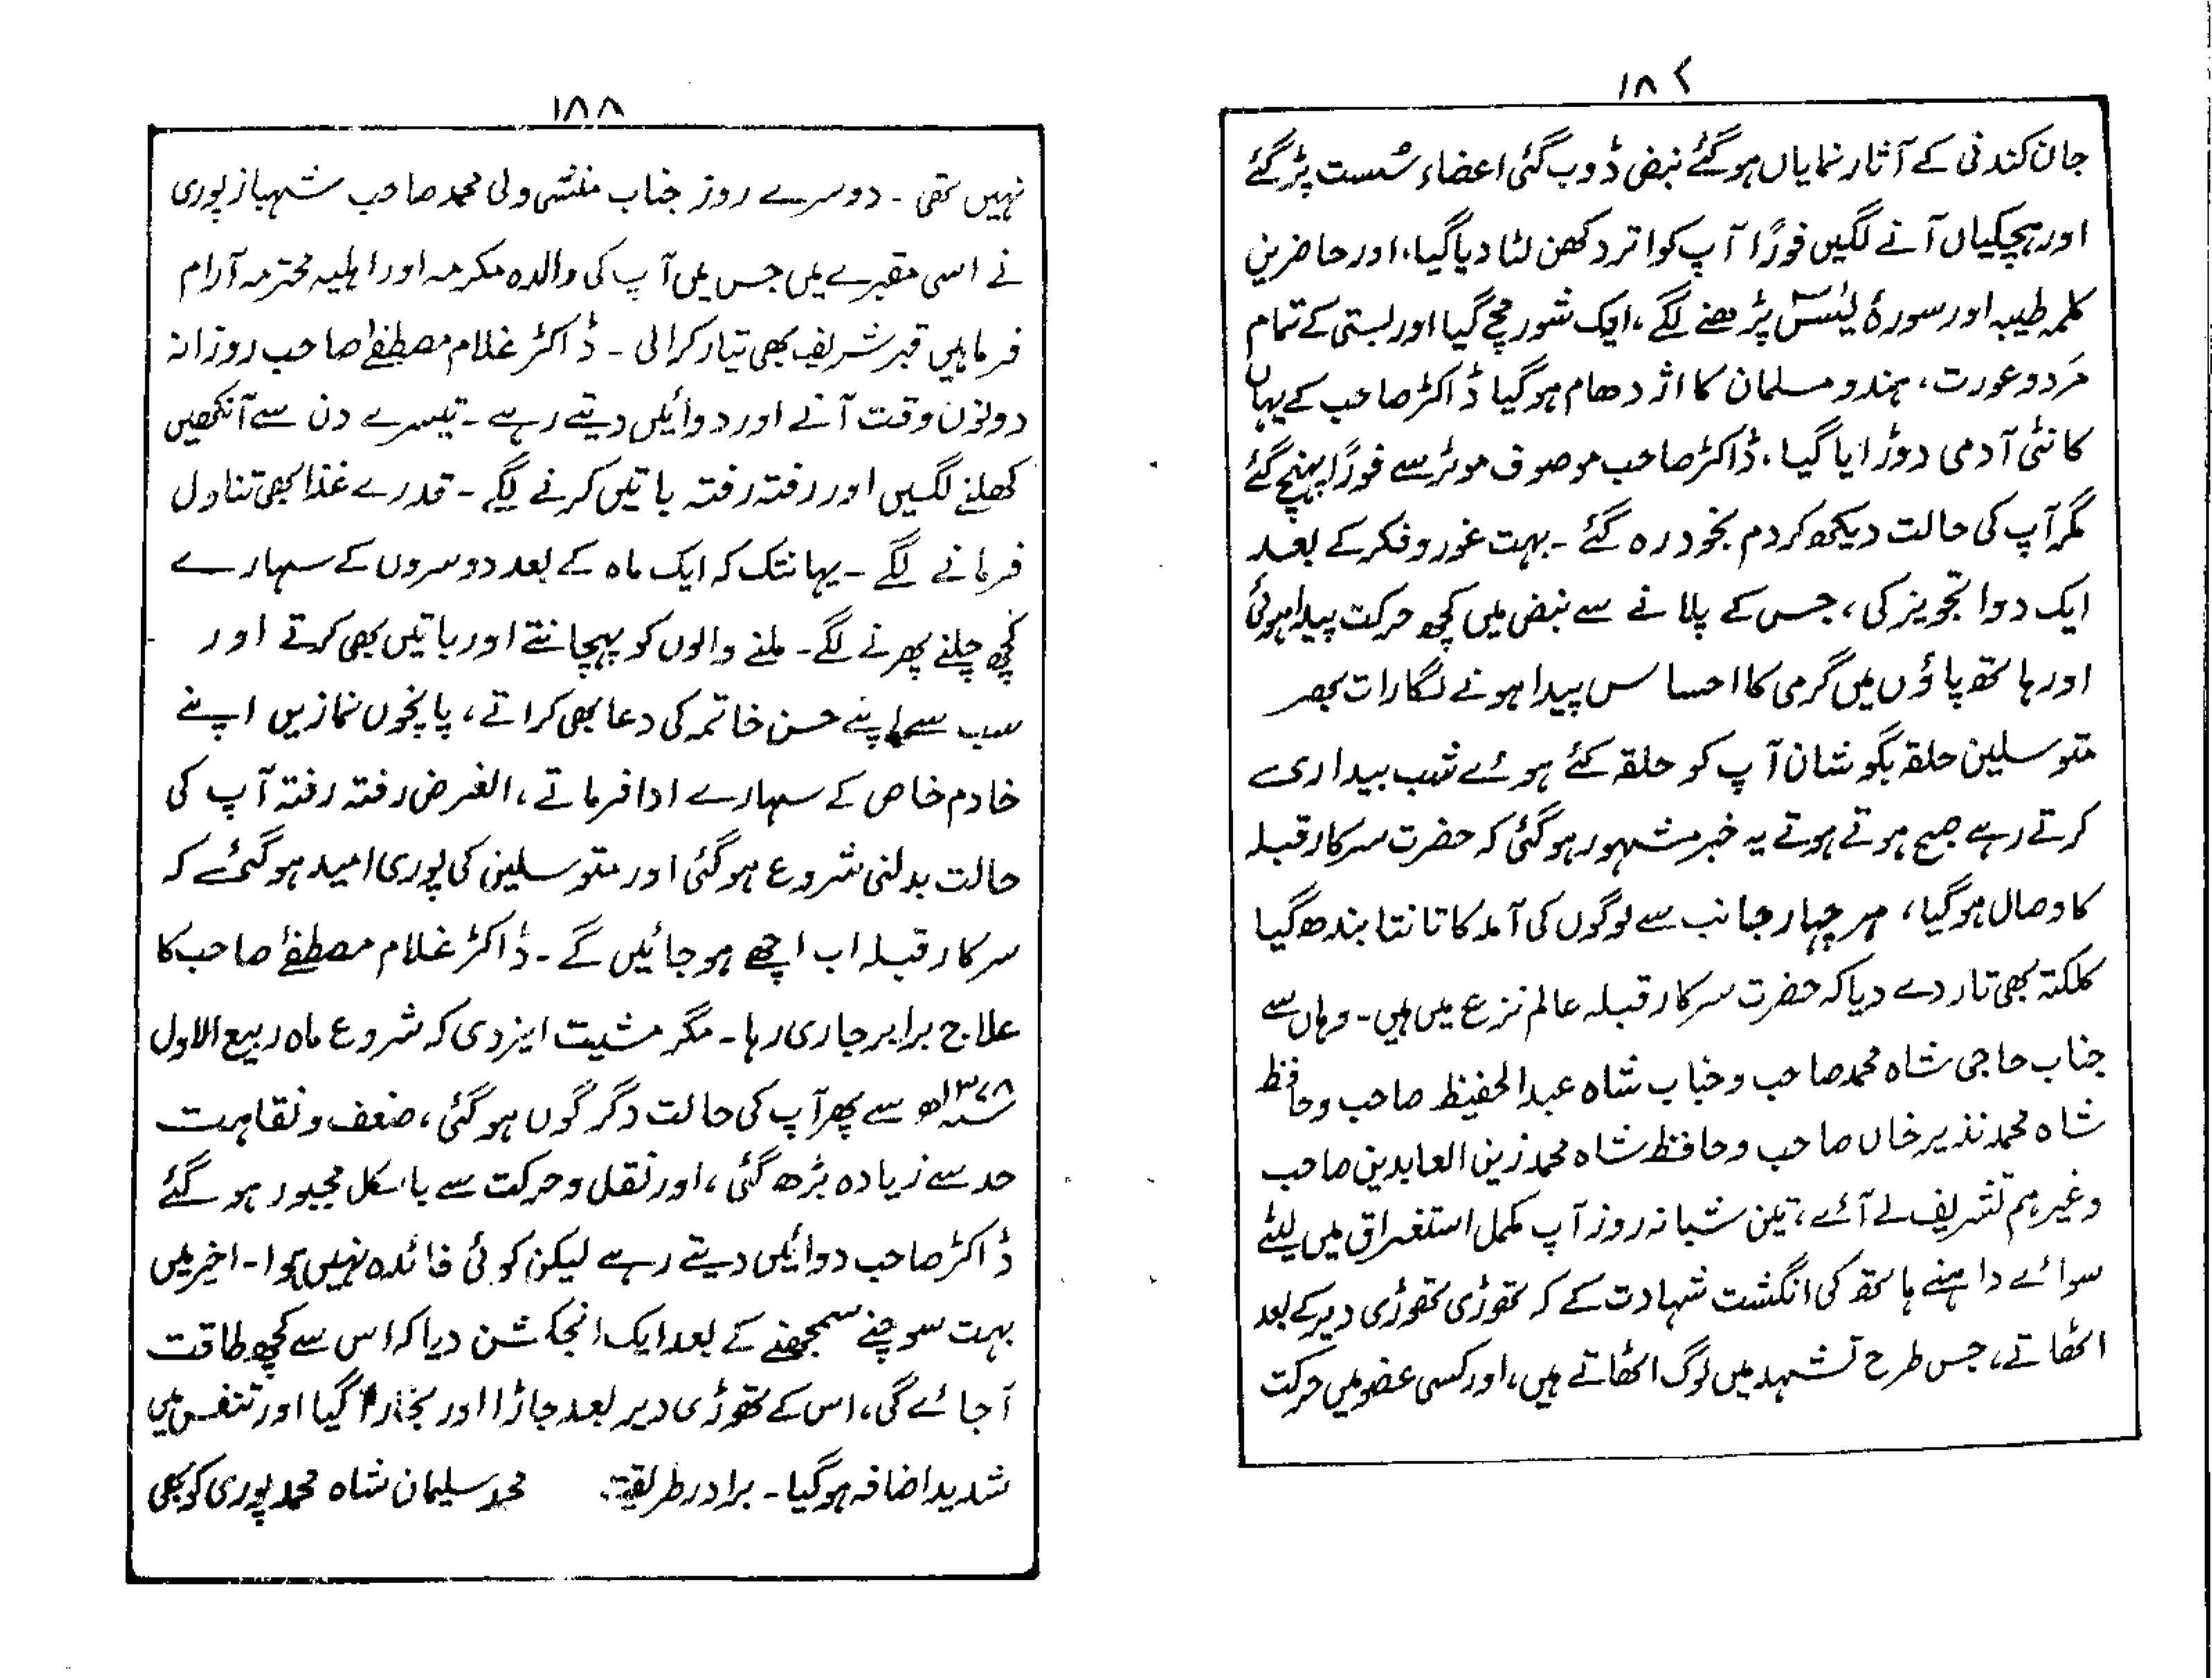 ۱۸۷
جان کندنی کے آثار نمایاں ہوگئے نبض ڈوب گئی اعضاء سُست پڑ گئے
اور ہچکیاں آنے لگیں فوراً آپ کو اتر دکھن لٹا دیا گیا، اور حاضرین
کلمہ طیبہ اور سورۂ یٰسٓ پڑھنے لگے، ایک شور مچ گیا اور بستی کے تمام
مرد و عورت، ہندو مسلمان کا اژدھام ہوگیا ڈاکٹر صاحب کے یہاں
کانٹی آدمی دوڑایا گیا، ڈاکٹر صاحب موصوف موٹر سے فوراً پہنچ گئے
مگر آپ کی حالت دیکھ کر دم بخود رہ گئے ۔ بہت غور و فکر کے بعد
ایک دوا تجویز کی، جس کے پلانے سے نبض میں کچھ حرکت پیدا ہوئی
اور ہاتھ پاؤں میں گرمی کا احساس پیدا ہونے لگا رات بھر
متوسلین حلقہ بگوشان آپ کو حلقہ کئے ہوئے شب بیداری
کرتے رہے صبح ہوتے ہوتے یہ خبر مشہور ہوگئی کہ حضرت سرکار قبلہ
کا وصال ہوگیا، ہر چہار جانب سے لوگوں کی آمد کا تانتا بندھ گیا
کلکتہ بھی تار دے دیا کہ حضرت سرکار قبلہ عالم نزع میں ہیں ۔ وہاں سے
جناب حاجی شاہ محمد صاحب و جناب شاہ عبدالحفیظ صاحب و حافظ
شاہ محمد نذیر خاں صاحب و حافظ شاہ محمد زین العابدین صاحب
وغیرہم تشریف لے آئے، تین شبانہ روز آپ مکمل استغراق میں لیٹے
سوائے داہنے ہاتھ کی انگشت شہادت کے کہ تھوڑی تھوڑی دیر کے بعد
اٹھاتے، جس طرح تشہد میں لوگ اٹھاتے ہیں، اور کسی عضو میں حرکت
۱۸۸
نہیں تھی ۔ دوسرے روز جناب منشی ولی محمد صاحب شہباز پوری
نے اسی مقبرے میں جس میں آپ کی والدہ مکرمہ اور اہلیہ محترمہ آرام
فرما ہیں قبر شریف بھی تیار کرالی ۔ ڈاکٹر غلام مصطفےٰ صاحب روزانہ
دونوں وقت آتے اور دوائیں دیتے رہے ۔ تیسرے دن سے آنکھیں
کھلنے لگیں اور رفتہ رفتہ باتیں کرنے لگے ۔ قدرے غذا بھی تناول
فرمانے لگے ۔ یہانتک کہ ایک ماہ کے بعد دوسروں کے سہارے
کچھ چلنے پھرنے لگے ۔ ملنے والوں کو پہچانتے اور باتیں بھی کرتے اور
سب سے اپنے حسن خاتمہ کی دعا بھی کراتے، پانچوں نمازیں اپنے
خادم خاص کے سہارے ادا فرماتے، الغرض رفتہ رفتہ آپ کی
حالت بدلنی شروع ہوگئی اور متوسلین کی پوری امید ہوگئے کہ
سرکار قبلہ اب اچھے ہو جائیں گے ۔ ڈاکٹر غلام مصطفےٰ صاحب کا
علاج برابر جاری رہا ۔ مگر مشیت ایزدی کہ شروع ماہ ربیع الاول
۱۳۷۸ھ سے پھر آپ کی حالت دگرگوں ہوگئی، ضعف و نقاہت
حد سے زیادہ بڑھ گئی، اور نقل و حرکت سے بالکل مجبور ہوگئے
ڈاکٹر صاحب دوائیں دیتے رہے لیکن کوئی فائدہ نہیں ہوا ۔ اخیر میں
بہت سوچنے سمجھنے کے بعد ایک انجکشن دیا کہ اس سے کچھ طاقت
آجائے گی، اس کے تھوڑی دیر بعد جاڑا اور بخار آگیا اور تنفس میں
شدید اضافہ ہوگیا ۔ برادر طریقت محمد سلیمان شاہ محمد پوری کو بھی